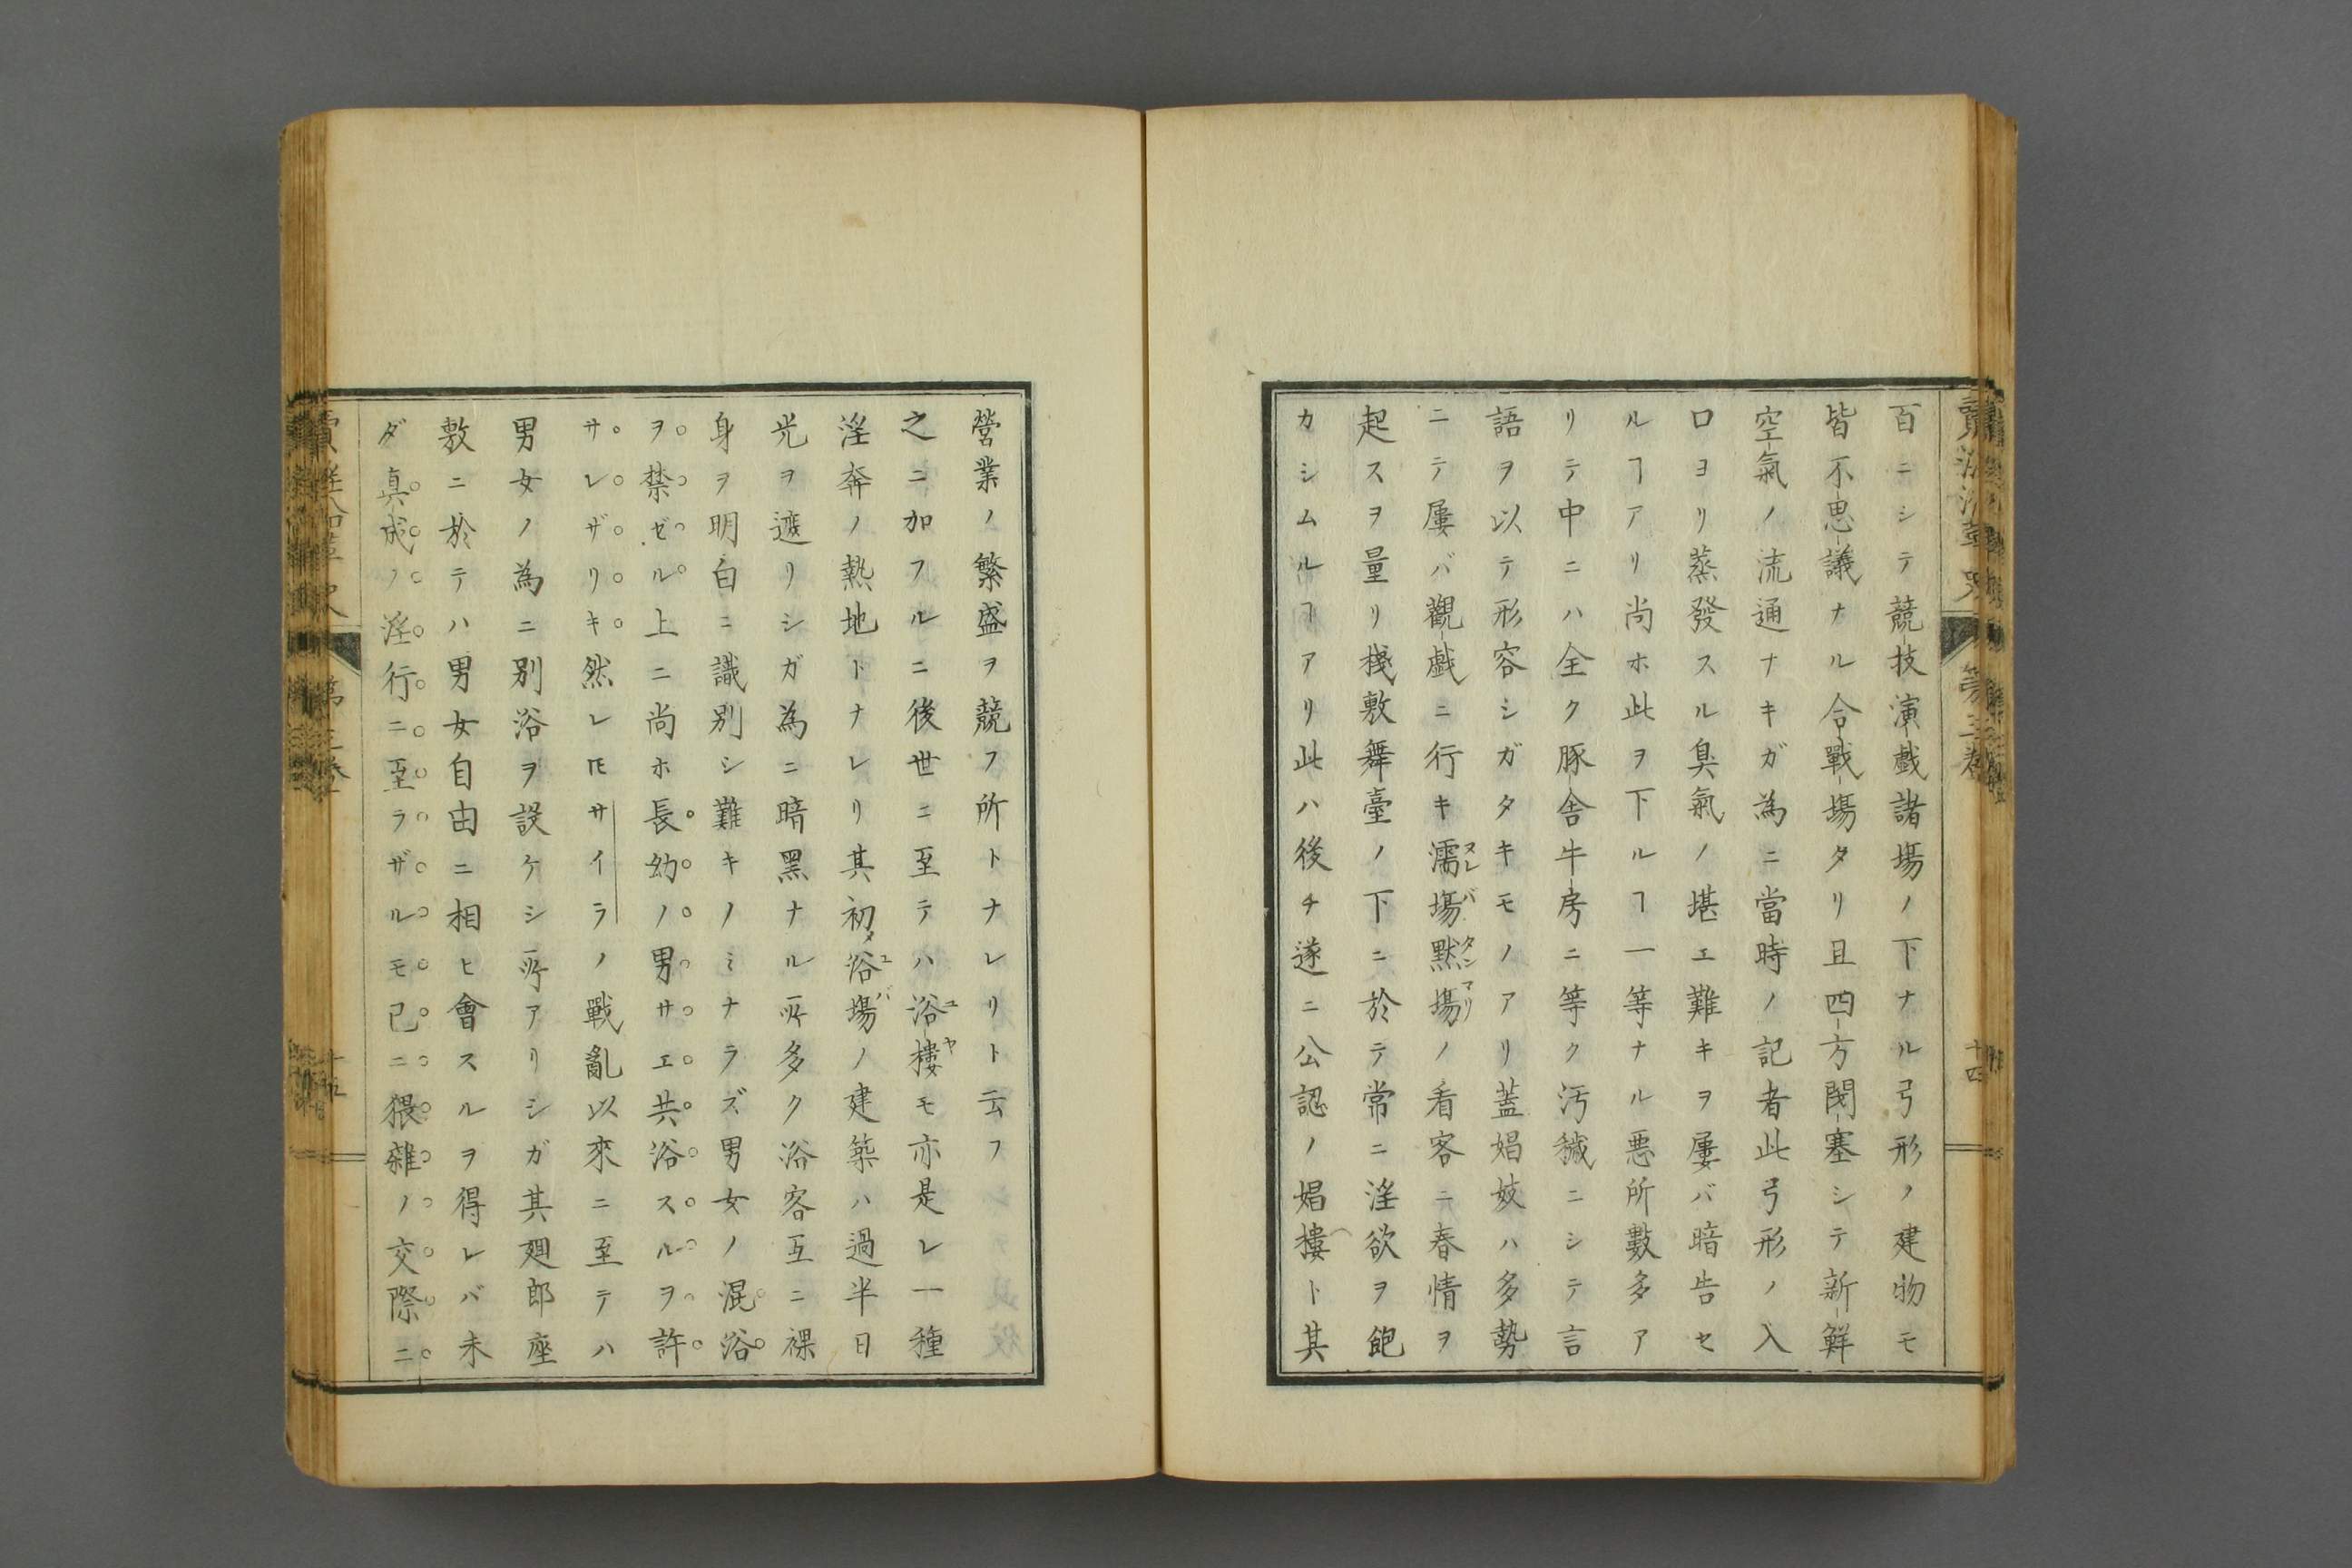 百ニシテ競技演戲諸場ノ下ナル弓形ノ建物モ
皆不思議ナル合戰場タリ且四方閉塞シテ新鮮
空氣ノ流通ナキガ為ニ當時ノ記者此弓形ノ入
口ヨリ蒸發スル臭氣ノ堪エ難キヲ屡バ暗告セ
ルヿアリ尚ホ此ヲ下ルヿ一等ナル悪所數多ア
リテ中ニハ全ク豚舎牛房ニ等ク汚穢ニシテ言
語ヲ以テ形容シガタキモノアリ蓋娼妓ハ多勢
ニテ屡バ觀戯ニ行キ濡場默場ノ看客ニ春情ヲ
起スヲ量リ棧敷舞臺ノ下ニ於テ常ニ淫欲ヲ飽
カシムルヿアリ此ハ後チ遂ニ公認ノ娼樓ト其
營業ノ繁盛ヲ競フ所トナレリト云フ
之ニ加フルニ後世ニ至テハ浴樓モ亦是レ一種
淫奔ノ熱地トナレリ其初メ浴場ノ建築ハ過半日
光ヲ遮リシガ為ニ暗黑ナル所多ク浴客互ニ裸
身ヲ明白ニ識別シ難キノミナラズ男女ノ混浴
ヲ禁ゼル上ニ尚ホ長幼ノ男サエ共浴スルヲ許
サレザリキ然レ𪜈サイラノ戰亂以來ニ至テハ
男女ノ為ニ別浴ヲ設ケシ所アリシガ其廻郎座
敷ニ於テハ男女自由ニ相ヒ會スルヲ得レバ未
ダ真成ノ淫行ニ至ラザルモ已ニ猥雜ノ交際ニ